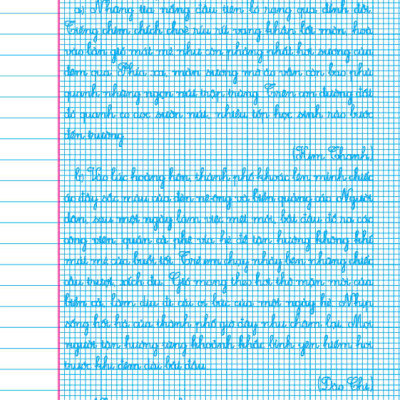 a) Những tia nắng đầu tiên ló rạng qua đỉnh đồi.
Tiếng chim chích choè ríu rít vang khắn lối mòn, hoà
vào làn gió mát mẻ như còn phảng phất hơi sương của
đêm qua. Phía xa, màn sương mờ ảo vẫn còn bao phủ
quanh những ngọn núi trập trùng. Trên con đường đất
đỏ quanh co dọc sườn núi, nhiều tốp học sinh rảo bước
đến trường.
(Kim Thanh)
b) Vào lúc hoàng hôn, thành phố khoác lên mình chiếc
áo đầy sắc màu của đèn nê-ông và biển quảng cáo. Người
dân, sau một ngày làm việc mệt mỏi, bắt đầu đổ ra các
công viên, quán cà phê vỉa hè để tận hưởng không khí
mát mẻ của buổi tối. Trẻ em chạy nhảy bên những chiếc
cầu trượt, xích đu. Gió mang theo hơi thở mặn mòi của
biển cả, làm dịu đi cái oi bức của một ngày hè. Nhịp
sống hối hả của thành phố giờ đây như chậm lại. Mọi
người tận hưởng từng khoảnh khắc bình yên hiếm hoi
trước khi đêm dài bắt đầu.
(Đào Chi)